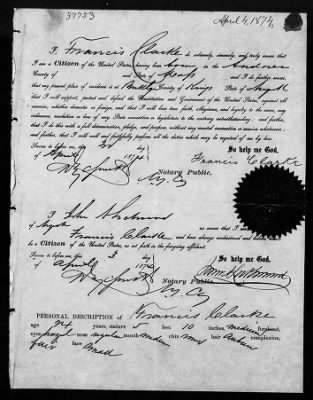 37753
April 4, 1874
I Francis Clarke do solemnly, sincerely, and truly swear that
I am a Citizen of the United States, having been born in the Andover
County of and State of Mass and I do further swear,
that my present place of residence is at County of Kings State of
that I will support, protect and defend the Constitution and Government of the United States, against all
enemies, whether domestic or foreign; and that I will bear true faith, allegiance, and loyalty to the same, any
ordinance, resolution or law of any State convention or legislature to the contrary notwithstanding; and further,
that I do this with a full determination, pledge, and purpose, without any mental reservation or evasion whatsoever;
and further, that I will well and faithfully perform all the duties which may be required of me by law.
So help me God.
Sworn to before me, this 3d day
of April 1874
Francis Clarke
Notary Public.
N.Y. Co
I John of
Francis Clarke and have always understood
to be a Citizen of the United States, as set forth in the foregoing affidavit.
Sworn to before me, this 3 day
So help me God.
of April 1874
Notary Public.
N.Y. Co
PERSONAL DESCRIPTION of Francis Clarke
age 24 years, stature 5 feet 10 inches, medium forehead,
eyes hazel nose regular mouth medium chin hair Auburn complexion,
fair face Small